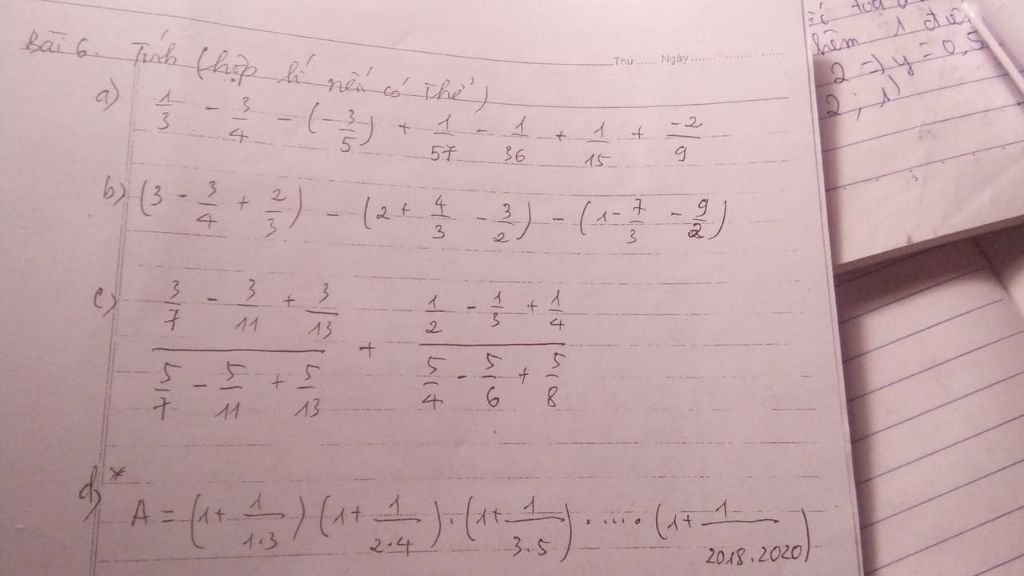 Bài 6. Tính (hợp lí nếu có thể)
Thứ ...... Ngày ...... ...... ......
a) 1/3 - 3/4 - (-3/5) + 1/57 - 1/36 + 1/15 + -2/9
b) (3 - 3/4 + 2/3) - (2 + 4/3 - 3/2) - (1 - 7/3 - 9/2)
c) (3/7 - 3/11 + 3/13)/(5/7 - 5/11 + 5/13) + (1/2 - 1/3 + 1/4)/(5/4 - 5/6 + 5/8)
d)* A = (1 + 1/1.3) (1 + 1/2.4) . (1 + 1/3.5) ..... (1 + 1/2018.2020)
1 điể
2 => y = 0,5
2 ; 1)